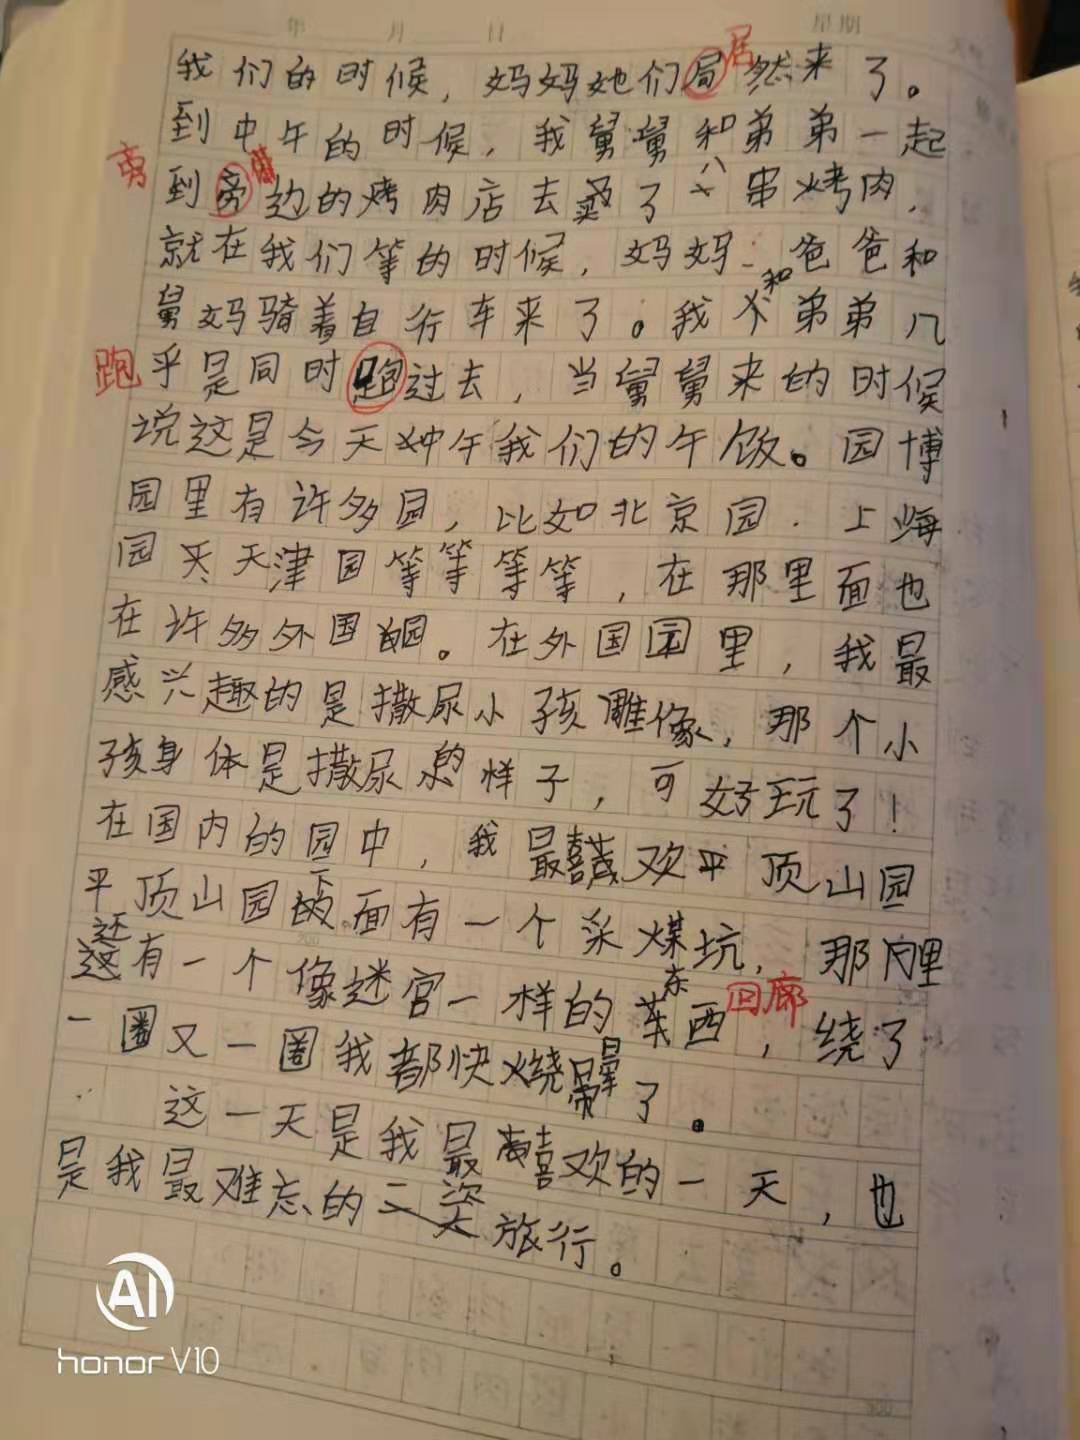 年 月 日 星期
我们的时候，妈妈她们局然来了。
居
到中午的时候，我舅舅和弟弟一起
旁
到旁边的烤肉店去买了八串烤肉，
就在我们等的时候，妈妈、爸爸和
舅妈骑着自行车来了。我和弟弟几
跑
乎是同时跑过去，当舅舅来的时候
说这是今天中午我们的午饭。园博
园里有许多园，比如北京园、上海
园、天津园等等等等，在那里面也
在许多外国园。在外国园里，我最
感兴趣的是撒尿小孩雕像，那个小
孩身体是撒尿的样子，可好玩了！
在国内的园中，我最喜欢平顶山园
平顶山园下面有一个采煤坑，那里
还有一个像迷宫一样的东西，绕了
回廊
一圈又一圈我都快绕晕了。
这一天是我最喜欢的一天，也
是我最难忘的旅行。
AI
honor V10